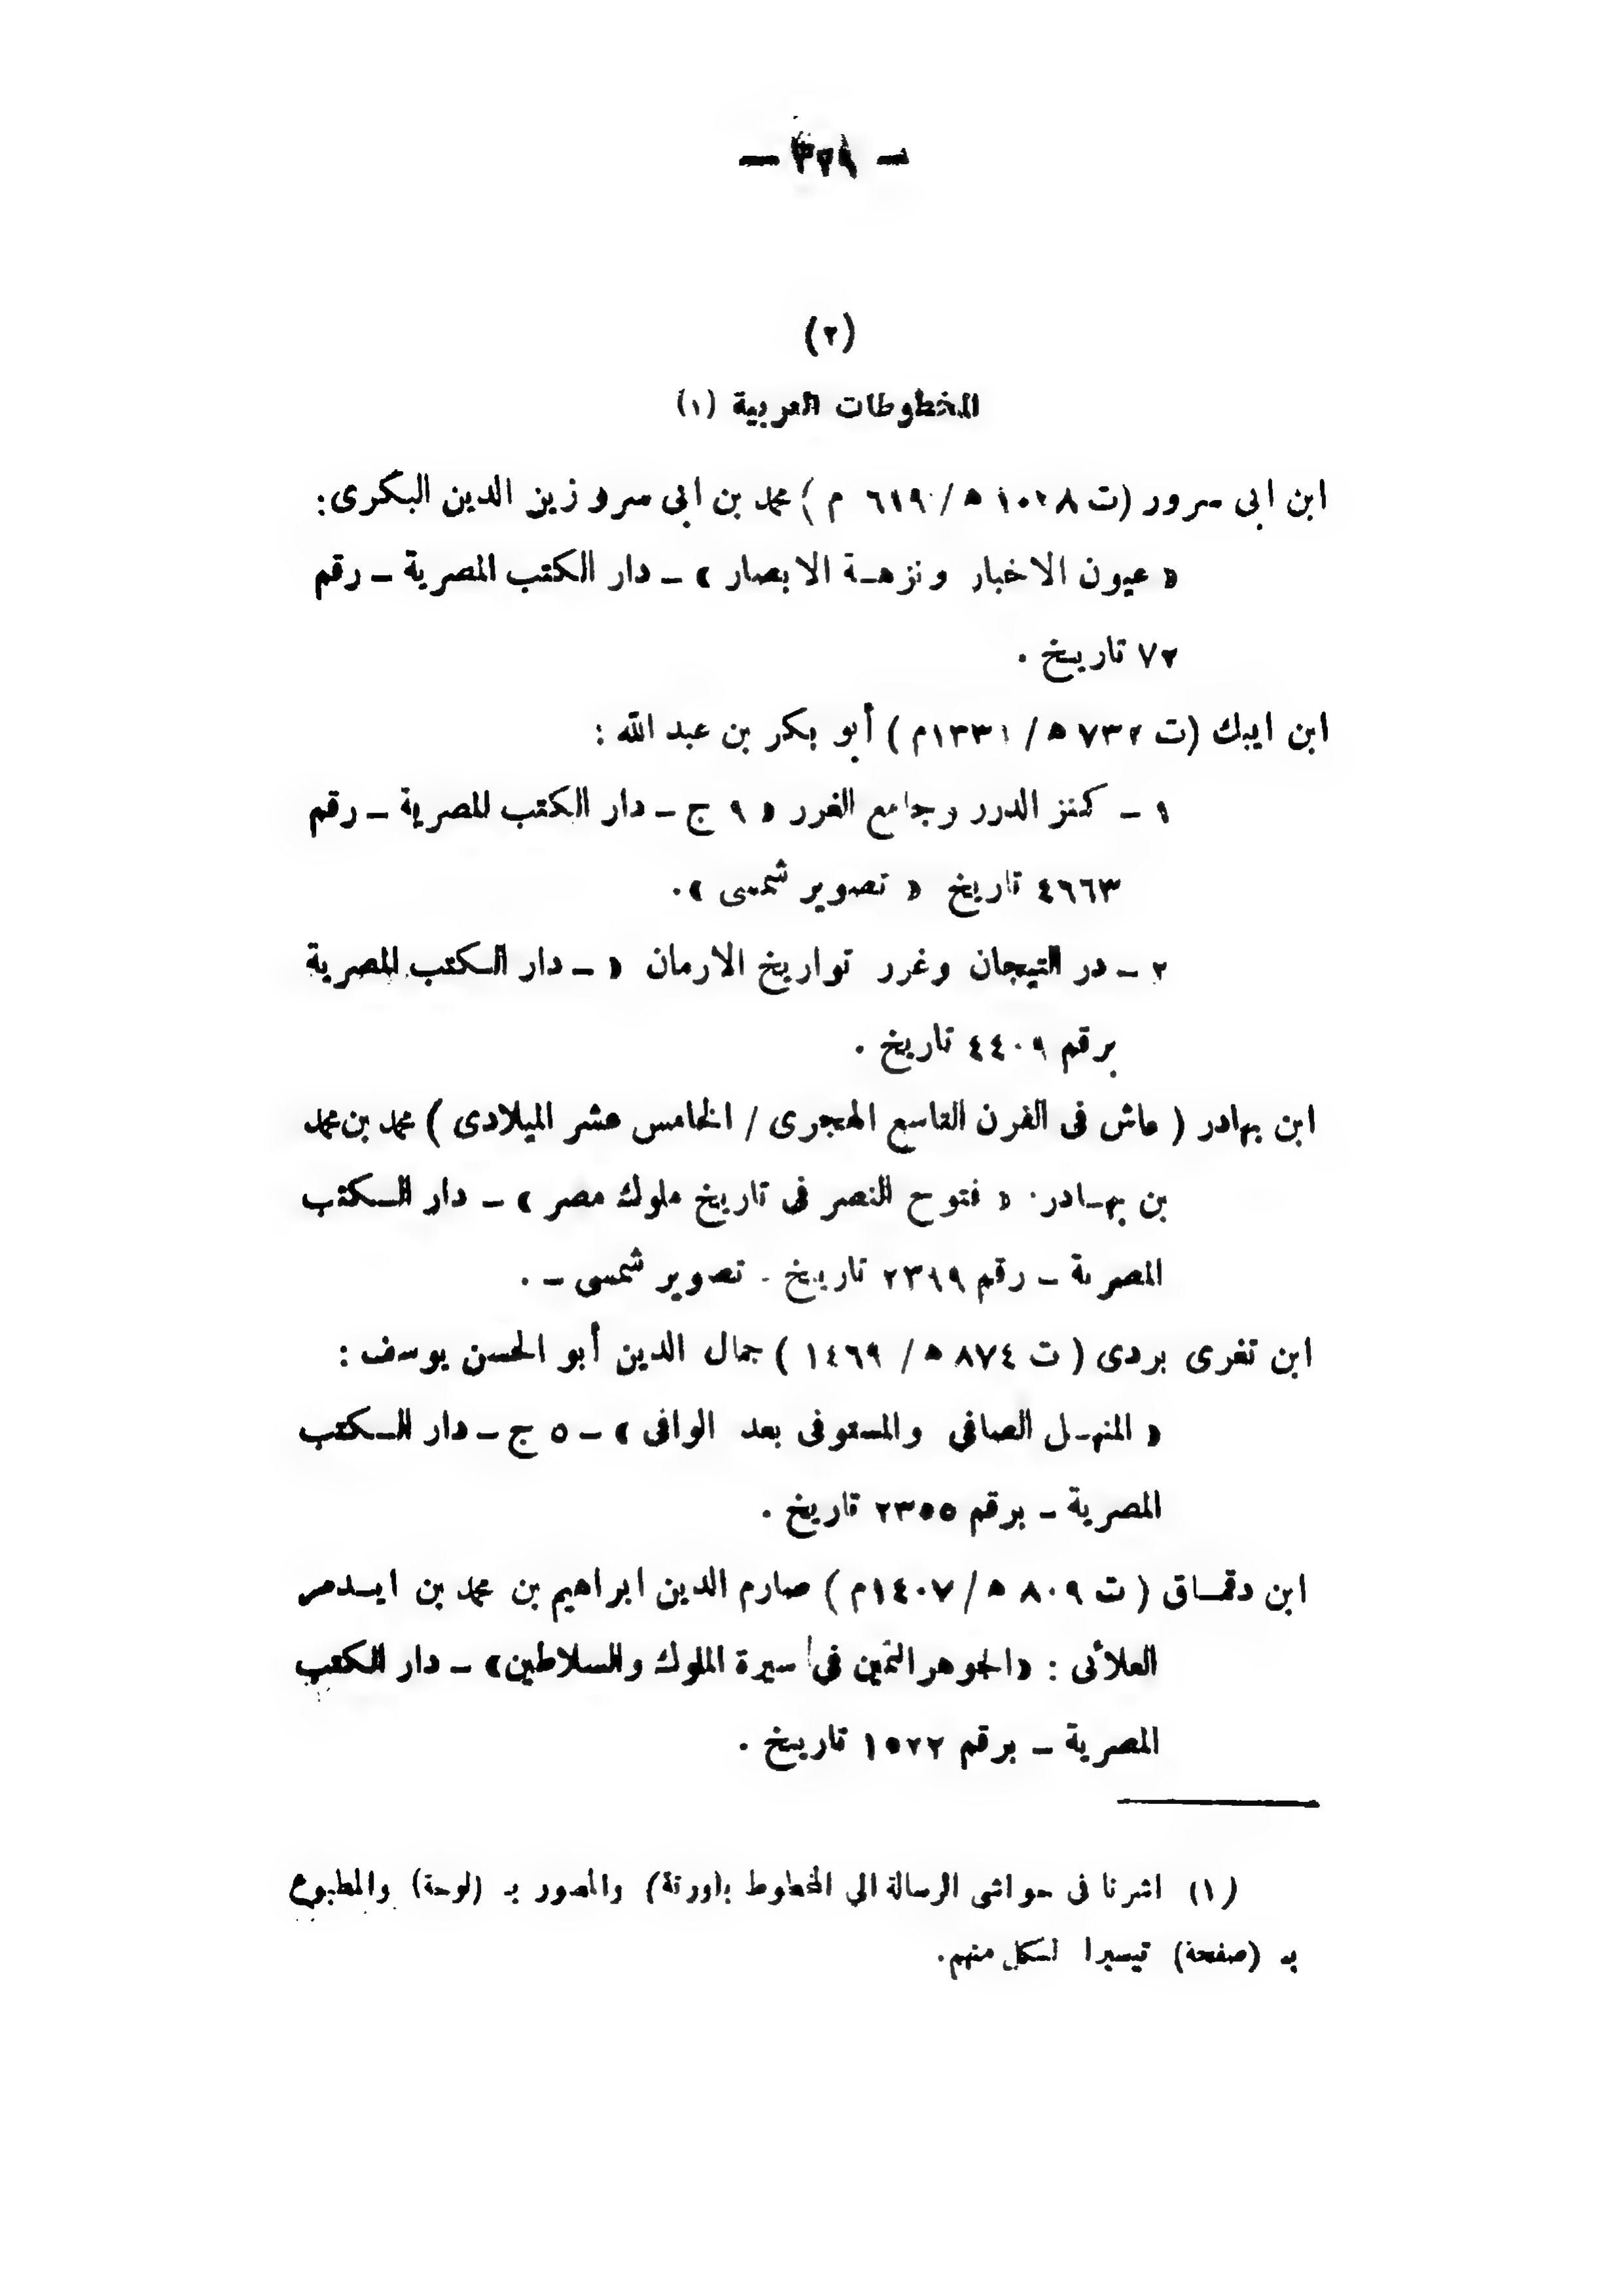 — ٣٢٩ —
(٢)
المخطوطات العربية (١)
ابن ابى سرور (ت ١٠٢٨ ه / ٦١٩ م) محمد بن ابى سرو زين الدين البكرى:
« عيون الاخبار ونزهـة الابصار » – دار الكتب المصرية – رقم
٧٢ تاريخ .
ابن ايبك (ت ٧٣٢ ه / ١٣٣١م) أبو بكر بن عبد الله :
١ – كنز الدرر وجامع الغرر « ٩ ج – دار الكتب المصرية – رقم
٤٦٦٣ تاريخ « تصوير شمسى ».
٢ – در التيجان وغرر تواريخ الارمان « – دار الكتب المصرية
برقم ٤٤٠٩ تاريخ .
ابن بهادر ( عاش فى القرن التاسع الهجرى / الخامس عشر الميلادى ) محمد بن محمد
بن بهـادر · « فتوح النصر فى تاريخ ملوك مصر » – دار الـكتب
المصرية – رقم ٢٣٩٩ تاريخ - تصوير شمسى – .
ابن تغرى بردى ( ت ٨٧٤ ه / ١٤٦٩ ) جمال الدين أبو الحسن يوسف :
« المنهـل الصافى والمستوفى بعد الوافى » – ٥ ج – دار الـكتب
المصرية – برقم ٢٣٥٥ تاريخ .
ابن دقمـاق ( ت ٨٠٩ ه / ١٤٠٧م ) صارم الدين ابراهيم بن محمد بن ايـدمر
العلائى : «الجوهر الثمين فى سيرة الملوك والسلاطين» – دار الكتب
المصرية – برقم ١٥٢٢ تاريخ .
(١) اشرنا فى حواشى الرسالة الى المخطوط بـ(ورقة) والمصور بـ (لوحة) والمطبوع
بـ (صفحة) تيسيرا لـكل منهم.